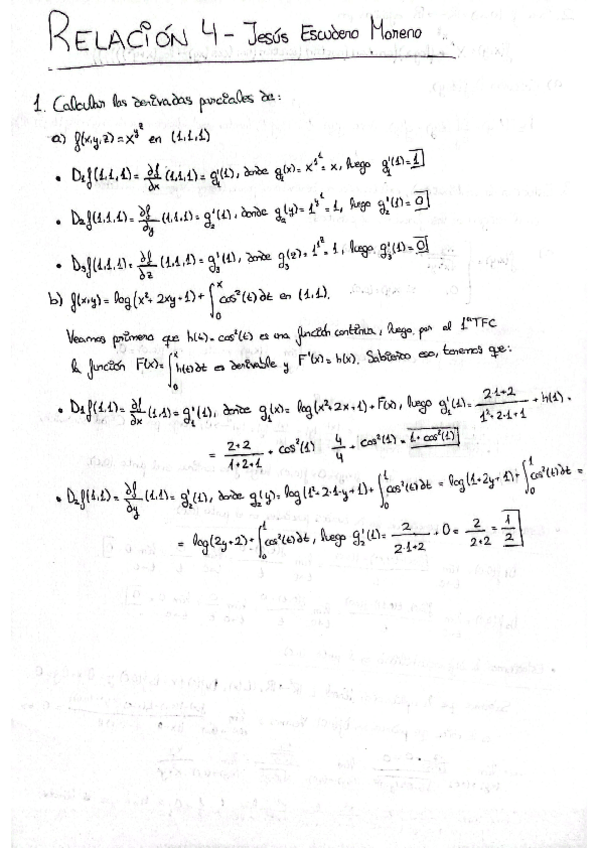 RELACIÓN 4 - Jesús Escudero Moreno
1. Calcular las derivadas parciales de:
a) f(x,y,z) = x^{y^z} en (1,1,1)
• D₁f(1,1,1) = ∂f/∂x (1,1,1) = g₁'(1), donde g₁(x) = x^{1^1} = x, luego g₁'(1) = 1
• D₂f(1,1,1) = ∂f/∂y (1,1,1) = g₂'(1), donde g₂(y) = 1^{y^1} = 1, luego g₂'(1) = 0
• D₃f(1,1,1) = ∂f/∂z (1,1,1) = g₃'(1), donde g₃(z) = 1^{1^z} = 1, luego g₃'(1) = 0
b) f(x,y) = log(x² + 2xy + 1) + ∫₀ˣ cos²(t)dt en (1,1).
Veamos primero que h(t) = cos²(t) es una función continua, luego, por el 1er TFC
la función F(x) = ∫₀ˣ h(t)dt es derivable y F'(x) = h(x). Sabiendo eso, tenemos que:
• D₁f(1,1) = ∂f/∂x (1,1) = g₁'(1), donde g₁(x) = log(x² + 2x + 1) + F(x), luego g₁'(1) = (2·1+2)/(1²+2·1+1) + h(1) =
= (2+2)/(1+2+1) + cos²(1) = 4/4 + cos²(1) = 1 + cos²(1)
• D₂f(1,1) = ∂f/∂y (1,1) = g₂'(1), donde g₂(y) = log(1² + 2·1·y + 1) + ∫₀¹ cos²(t)dt = log(1+2y+1) + ∫₀¹ cos²(t)dt =
= log(2y+2) + ∫₀¹ cos²(t)dt, luego g₂'(1) = 2/(2·1+2) + 0 = 2/(2+2) = 1/2